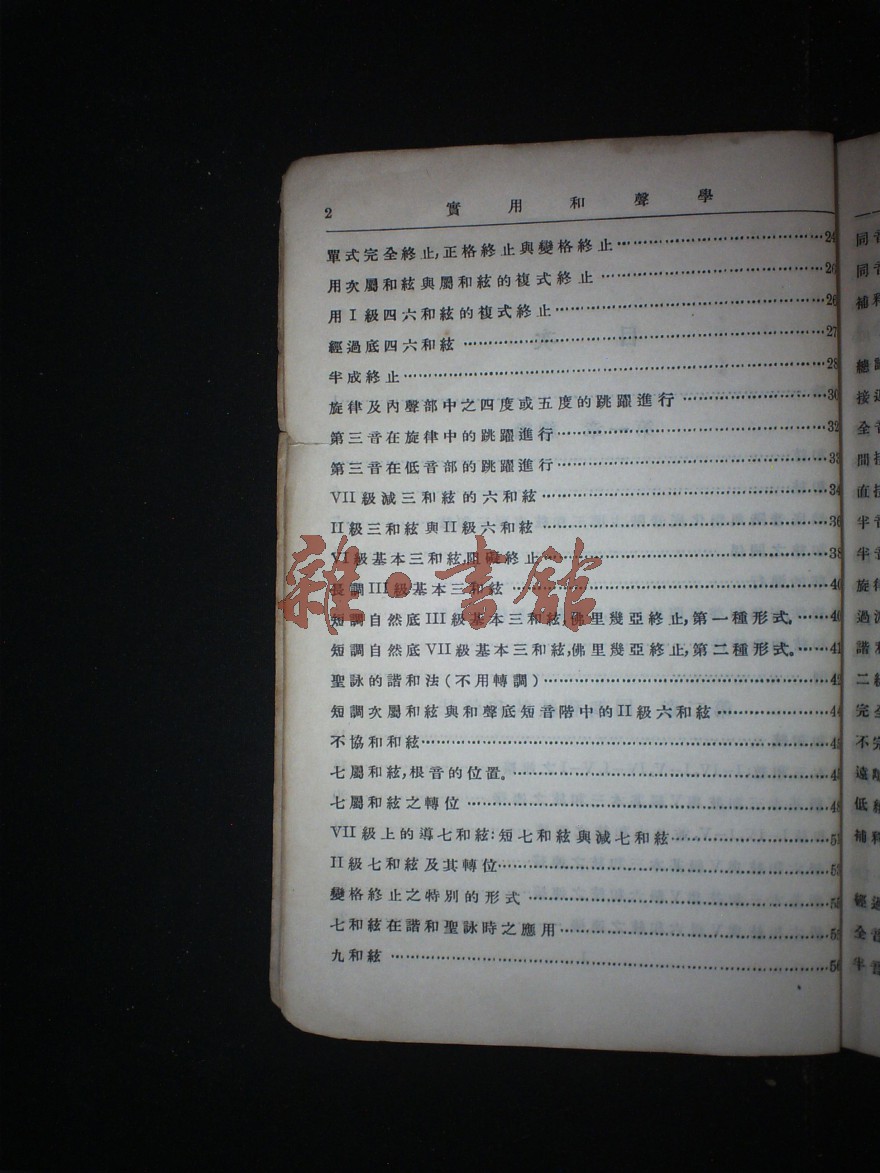 2 實用和聲學
單式完全終止,正格終止與變格終止……24
用次屬和絃與屬和絃的複式終止……26
用I級四六和絃的複式終止……26
經過底四六和絃……27
半成終止……28
旋律及內聲部中之四度或五度的跳躍進行……30
第三音在旋律中的跳躍進行……32
第三音在低音部的跳躍進行……33
VII級減三和絃的六和絃……34
II級三和絃與II級六和絃……36
VI級基本三和絃,阻礙終止……38
長調III級基本三和絃……40
短調自然底III級基本三和絃,佛里幾亞終止,第一種形式。……40
短調自然底VII級基本三和絃,佛里幾亞終止,第二種形式。……41
聖詠的諧和法(不用轉調)……42
短調次屬和絃與和聲底短音階中的II級六和絃……44
不協和和絃……45
七屬和絃,根音的位置。……45
七屬和絃之轉位……48
VII級上的導七和絃:短七和絃與減七和絃……51
II級七和絃及其轉位……53
變格終止之特別的形式……55
七和絃在諧和聖詠時之應用……55
九和絃……56
雜·書館
同音
同音
補釋
總
接過
全音
間接
直接
半音
半音
旋律
過
諧和
二級
完全
不完
遠
低
補釋
經過
全音
半音